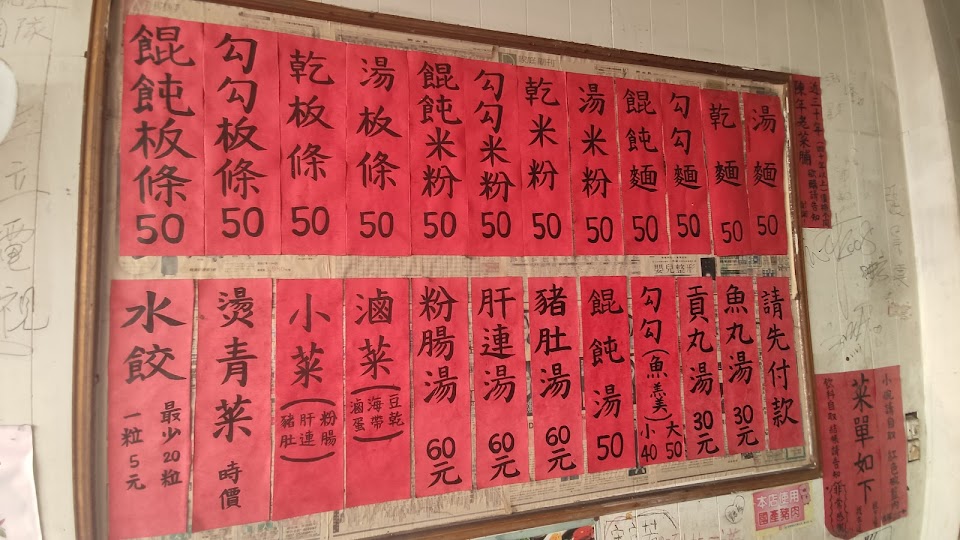 湯麵50
乾麵50
勾勾麵50
餛飩麵50
湯米粉50
乾米粉50
勾勾米粉50
餛飩米粉50
湯板條50
乾板條50
勾勾板條50
餛飩板條50
請先付款
魚丸湯30元
貢丸湯30元
勾勾(魚
大50
小40
餛飩湯50
豬肚湯60元
肝連湯60元
粉腸湯60元
滷菜(
豆乾
海帶
滷蛋)
小菜(
粉腸
肝連
豬肚)
燙青菜 時價
水餃
最少20粒
一粒5元
陳年老菜脯
菜單如下
本店使用
國產豬肉
電視